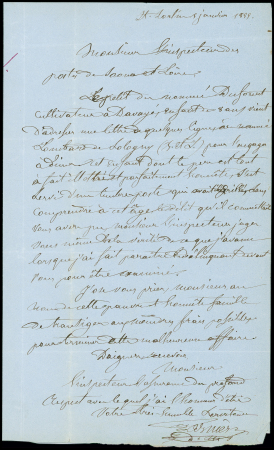 St. Lastin 8 janvier 1855.
Monsieur l'inspecteur des
postes de Saone et Loire
Le petit du nommé Dufour
cultivateur à Davayé, enfant de 8 ans vient
d'adresser une lettre à quelques lignes au nommé
Lombard de Sologny (S et L) pour l'engager
à diner cet enfant dont le père est tout
à fait et parfaitement honnête, s'est
servi d'un timbre poste qui avait servi, sans
comprendre à cet âge le délit qu'il commettait
vous avez pu monsieur l'inspecteur juger
vous même de la vérité de ce que j'avance
lorsque j'ai fait paraître devant
vous pour être examiné.
J'ose vous prier monsieur au
nom de cette pauvre et honnête famille
de transiger aux moindres frais possibles
pour terminer cette malheureuse affaire.
Daignez recevoir
Monsieur
l'inspecteur l'assurance du profond
Respect avec lequel j'ai l'honneur d'être
Votre très humble serviteur